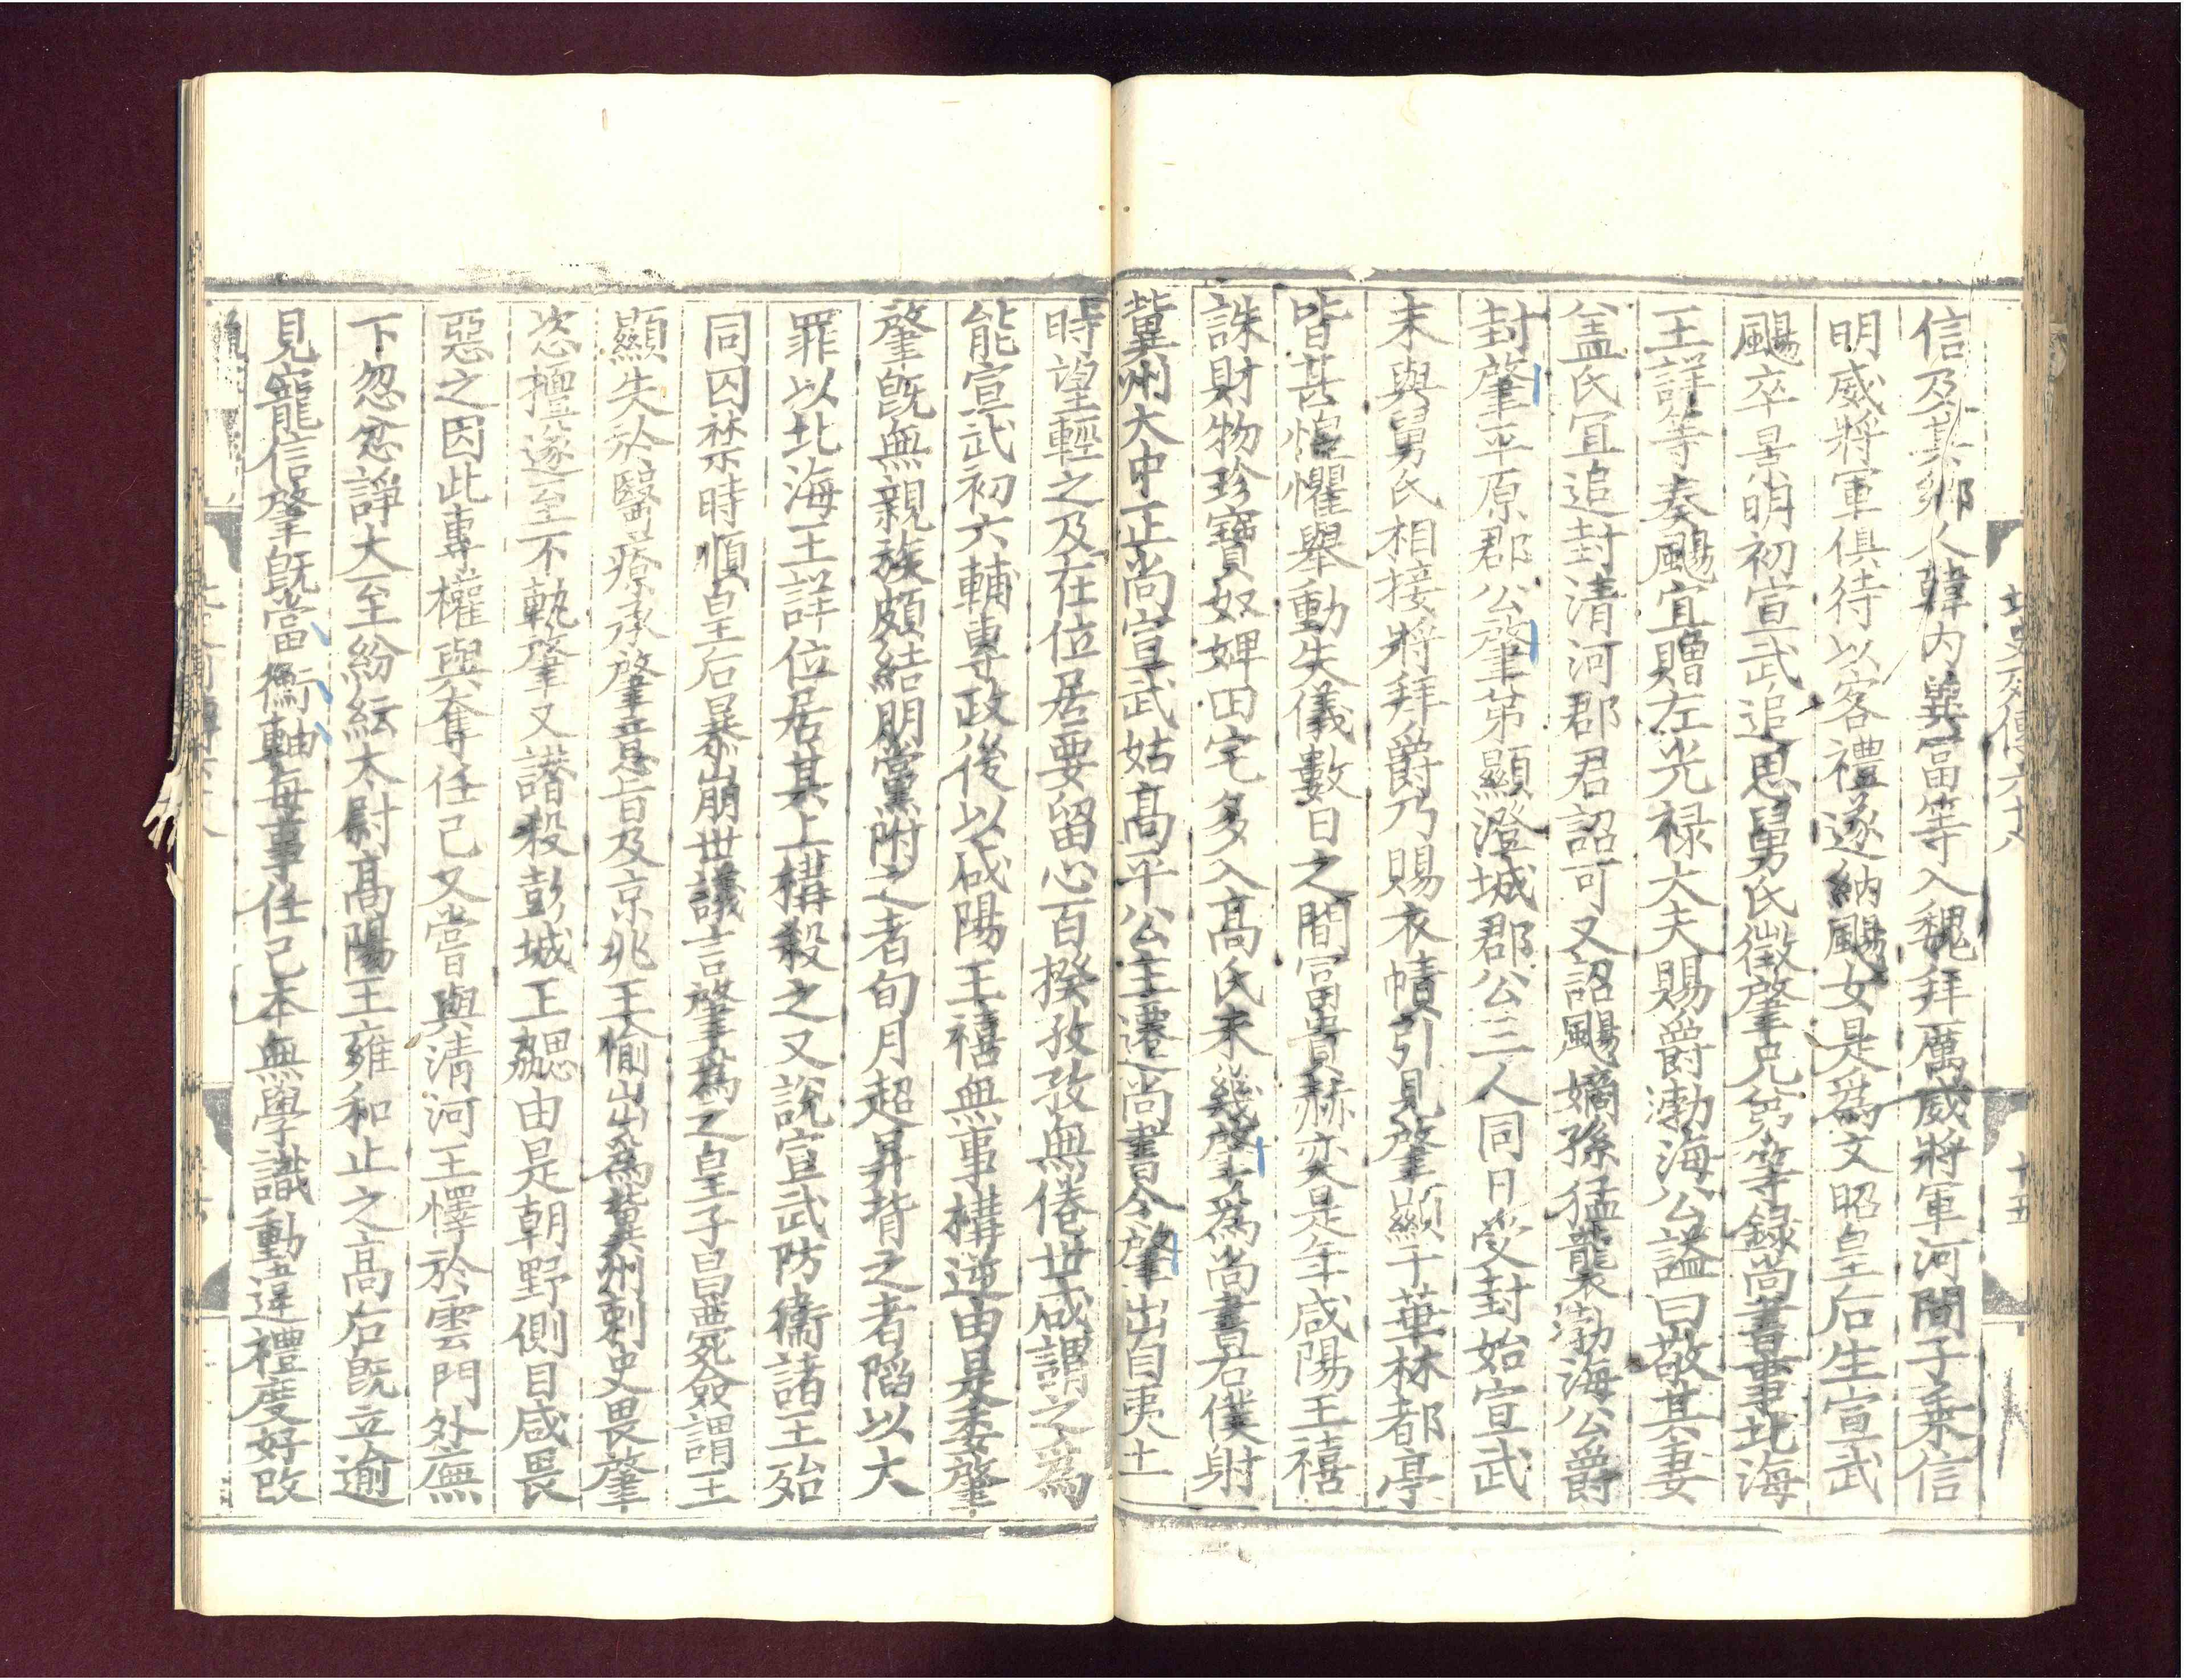 信及其鄉人韓內冀富等入魏拜厲威將軍河間子乘信
明威將軍俱待以客禮遂納颺女是爲文昭皇后生宣武
颺卒景明初宣武追思舅氏徵肇兄弟等錄尚書事北海
王詳等奏颺宜贈左光祿大夫賜爵渤海公諡曰敬其妻
盖氏宜追封清河郡君詔可又詔颺嫡孫猛襲渤海公爵
封肇平原郡公肇弟顯澄城郡公三人同日受封始宣武
未與舅氏相接將拜爵乃賜衣幘引見肇顯于華林都亭
皆甚惶懼舉動失儀數日之間富貴赫奕是年咸陽王禧
誅財物珍寶奴婢田宅多入高氏未幾肇爲尚書右僕射
冀州大中正尚宣武姑高平公主遷尚書令肇出自夷土
時望輕之及在位居要留心百揆孜孜無倦世咸謂之爲
能宣武初六輔專政後以咸陽王禧無事構逆由是委肇
肇既無親族頗結朋黨附之者旬月超昇背之者陷以大
罪以北海王詳位居其上構殺之又說宣武防衞諸王殆
同囚禁時順皇后暴崩世議言肇爲之皇子昌薨僉謂王
顯失於醫療承肇意旨及京兆王愉出爲冀州刺史畏肇
恣擅遂至不軌肇又譖殺彭城王勰由是朝野側目咸畏
惡之因此專權與奪任己又嘗與清河王懌於雲門外廡
下忽忿諍大至紛紜太尉高陽王雍和止之高后既立逾
見寵信肇既當衡軸每事任己本無學識動違禮度好改